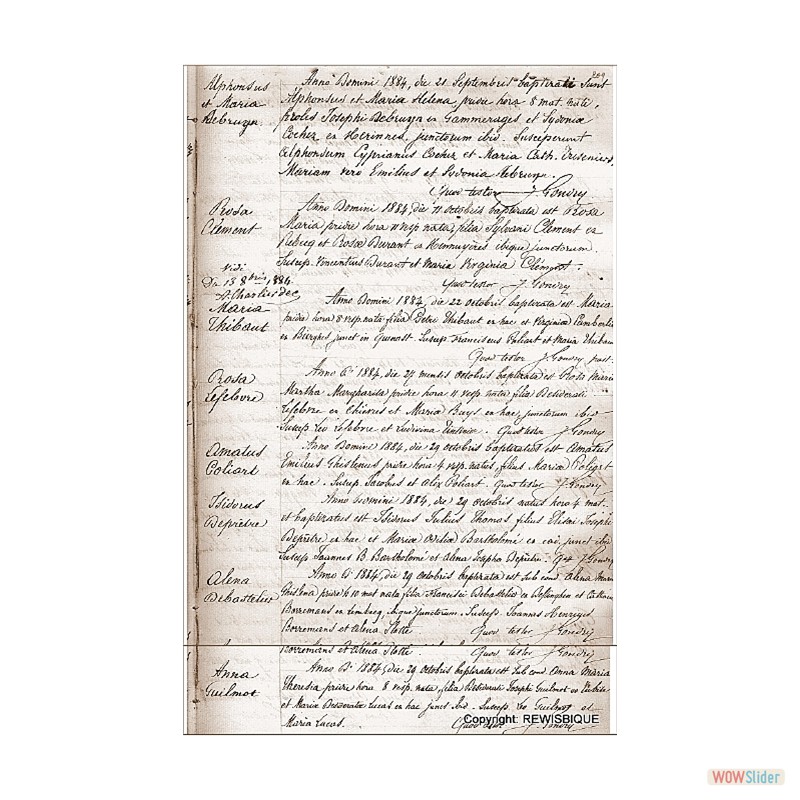 209
Alphonsus
et Maria
Debruyn.
Anno Domini 1884, die 21 Septembris baptizati sunt
Alphonsus et Maria Helena pridie hora 8 mat. nati,
proles Josephi Debruyn ex Gammerages et Sydonia
Cochez ex Herinnes, junctorum ibid. Susceperunt
Alphonsum Cyprianus Cochez et Maria Cath.
Mariam vero Emilius et Sidonia Debruyn.
Quod testor J. Gondry
Rosa
Clement
Anno Domini 1884, die 11 octobris baptizata est Rosa
Maria pridie hora 11 vesp nata, filia Sylvani Clement ex
Rebecq et Rosa Durant ex Hennuyères ibique junctorum.
Suscep. Vincentius Durant et Maria Virginia Clément.
Quod testor J. Gondry
Vidi
Die 13 8bris 1884.
Maria
Thibaut
Anno Domini 1884, die 22 octobris baptizata est Maria
pridie hora 8 vesp. nata filia Petri Thibaut ex hac et Virginia
ex Bierghes junct in Quenast. Suscep Franciscus Poliart et Maria Thibaut
Quod testor J. Gondry past.
Rosa
Lefebvre
Anno Di 1884, die 27 mensis octobris baptizata est Rosa Maria
Martha Margharita pridie hora 11 vesp nata filia Desiderati
Lefebvre ex Chièvres et Maria Buys ex hac, junctorum ibid
Suscep Leo Lefebvre et Ludivina. Quod testor J. Gondry
Amatus
Coliart
Anno Domini 1884, die 29 octobris baptizatus est Amatus
Emilius Ghislenus pridie hora 4 vesp. natus, filius Maria Poliart
ex hac. Suscep. Jacobus et Alix Poliart. Quod testor J. Gondry
Isidorus
Deprêtre
Anno Domini 1884, die 29 octobris natus hora 4 mat.
et baptizatus est Isidorus Julius Thomas, filius Josephi
Deprêtre ex hac et Maria Odilia Bartholomé ex ead, junct ibid
Suscep Joannes B. Bartholomé et Alena Deprêtre. J Gondry
Alena
Debastelier
Anno Di 1884, die 29 octobris baptizata est sub cond Alena Maria
Ghislena pridie h 10 mat nata filia Francisci Debastelier ex et
Borremans ex Lembecq, ibique junctorum. Suscep. Joannes Henricus
Borremans et Alena Slotte Quod testor J Gondry
Borremans et Alena Slotte Quod testor J Gondry
Anna
Guilmot
Anno Di 1884, die 29 octobris baptizata est sub cond Anna Maria
Theresia pridie hora 8 vesp. nata, filia Desiderati Josephi Guilmot ex
et Maria Desiderata Lucas ex hac junct ibid. Suscep Leo Guilmot et
Maria Lucas. Quod testor J. Gondry
Copyright: REWISBIQUE
WOWSlider